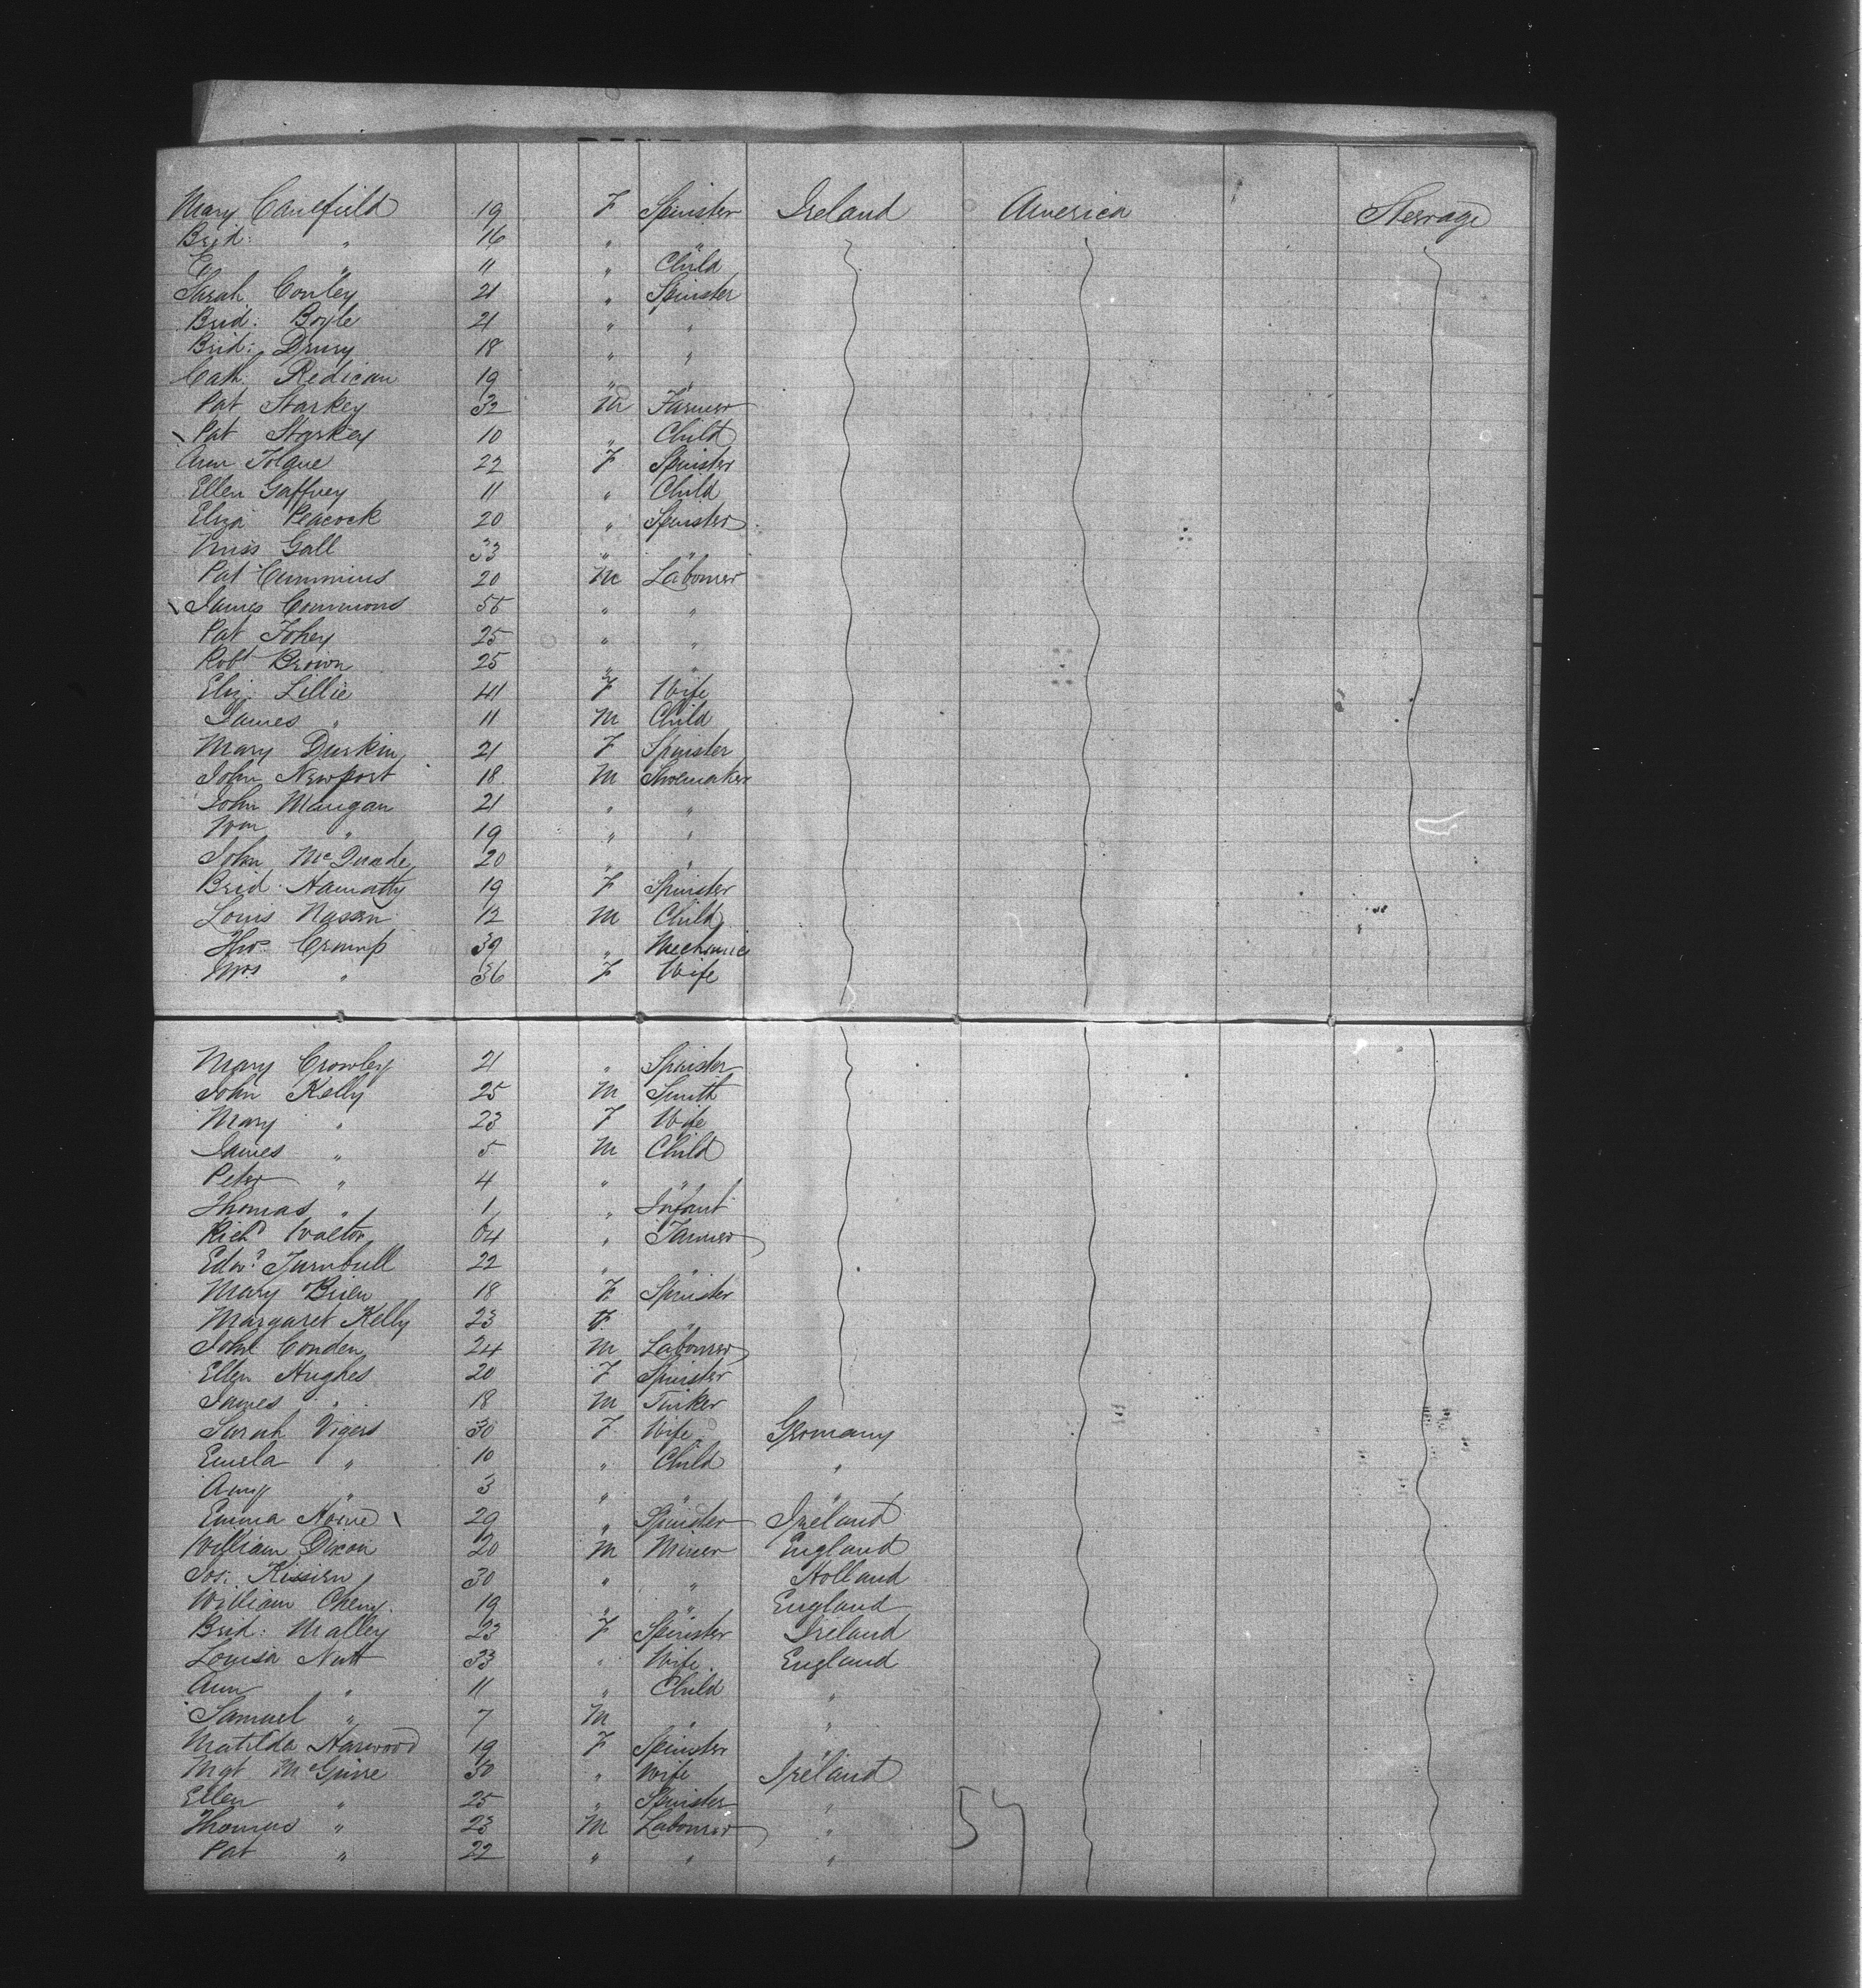 Mary Caulfield 19 F Spinster Ireland America Sterrage
Brid: " 16 " "
" 11 " Child
Sarah Conley 21 " Spinster
Brid: Boyle 21 " "
Brid: Drury 18 " "
Cath. Redican 19 " "
Pat Starkey 32 M Farmer
Pat Starkey 10 " Child
Ann Tolgue 22 F Spinster
Ellen Gaffney 11 " Child
Eliza Peacock 20 " Spinster
Miss Gall 33 " "
Pat Cummins 20 M Labourer
James Commons 55 " "
Pat Fohey 25 " "
Robt Brown 25 " "
Eliz. Lillie 41 F Wife
James " 11 M Child
Mary Durkin 21 F Spinster
John Newport 18 M Shoemaker
John Mangan 21 " "
Wm " 19 " "
John McQuade 20 " "
Brid. 19 F Spinster
Louis Nassen 12 M Child
Thos. Crump 39 " Mechanic
Mrs " 36 F Wife
Mary Crowley 21 " Spinster
John Kelly 25 M Smith
Mary " 23 F Wife
James " 5 M Child
Peter " 4 " "
Thomas " 1 " Infant
Richd Walton 64 " Farmer
Edwd Turnbull 22 " "
Mary Brien 18 F Spinster
Margaret Kelly 23 F "
John Conden 24 M Labourer
Ellen Hughes 20 F Spinster
James " 18 M Tinker
Sarah Vigers 30 F Wife Germany
Emela " 10 " Child "
Amy " 3 " " "
Emma Horne 29 " Spinster Ireland
William Dixon 20 M Miner England
Jos. Kissien 30 " " Holland
William Cherry 19 " " England
Brid: Malley 23 F Spinster Ireland
Louisa Nutt 33 " Wife England
Ann " 11 " Child "
Samuel " 7 M " "
Matilda Harwood 19 F Spinster "
Mgt McGuire 50 " Wife Ireland
Ellen " 25 " Spinster "
Thomas " 23 M Labourer "
Pat " 22 " " "
57